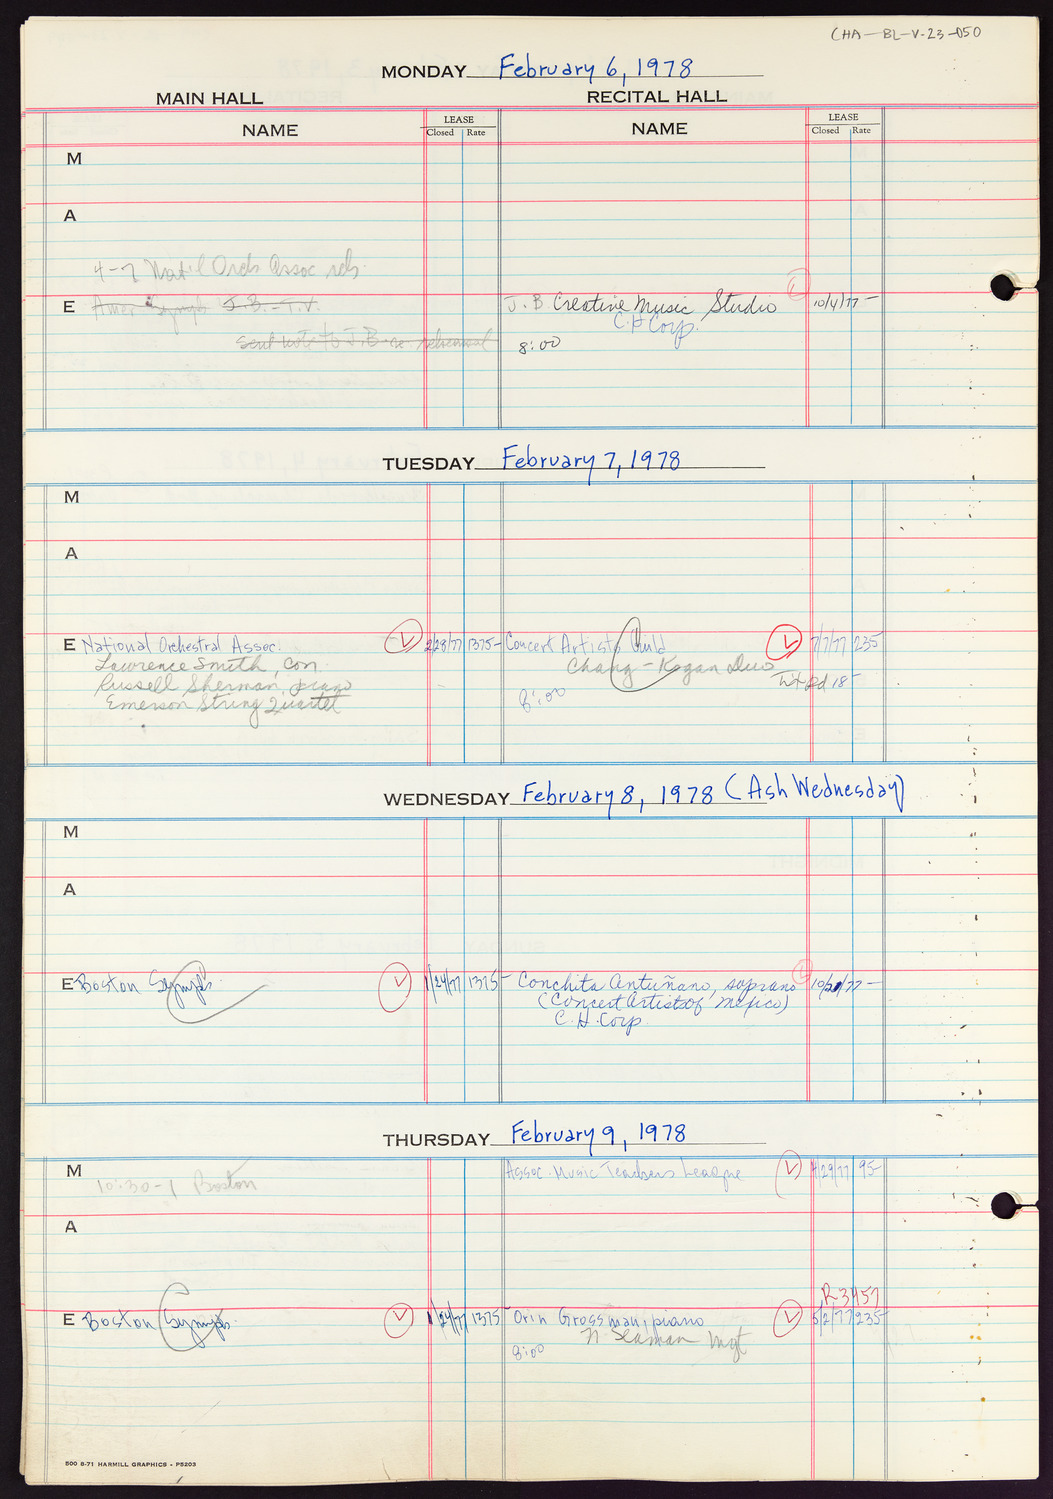 CHA-BL-V-23-050
MONDAY February 6, 1978
MAIN HALL RECITAL HALL
NAME LEASE Closed Rate NAME LEASE Closed Rate
M
A
4-7 Nat'l Orch Assoc reh.
E Amer Symph J.B.-T.V. J.B Creative Music Studio 10/4/77 -
C.H Corp.
sent note to J.B. re rehearsal 8:00
TUESDAY February 7, 1978
M
A
E National Orchestral Assoc. 2/28/77 1375- Concert Artists Guild 7/7/77 235
Lawrence Smith, con Chang-Kogan Duo
Russell Sherman, piano 8:00
Emerson String Quartet
WEDNESDAY February 8, 1978 (Ash Wednesday)
M
A
E Boston Symph. 1/24/77 1375- Conchita Antuñano, soprano 10/21/77 -
(Concert Artists of Mexico)
C.H.Corp.
THURSDAY February 9, 1978
M Assoc. Music Teachers League 4/29/77 95-
10:30-1 Boston
A
R3457
E Boston Symph. 1/24/77 1375- Orin Grossman, piano 5/2/77 235-
N Seaman Mgt
8:00
500 6-71 HARMILL GRAPHICS - P5203